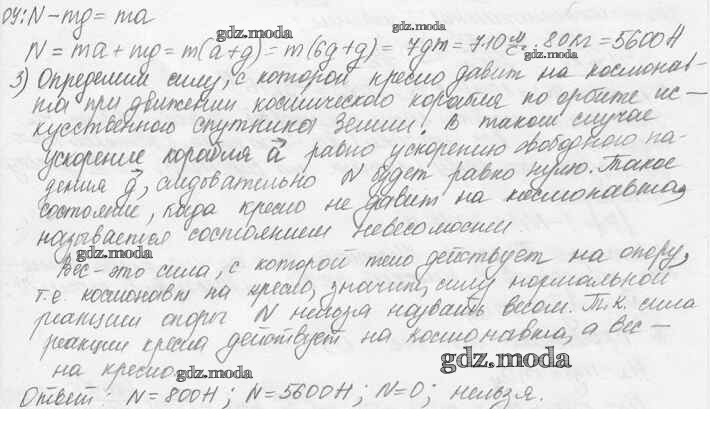 ОУ: N – mg = ma
gdz.moda
gdz.moda
N = ma + mg = m(a+g) = m(6g+g) = 7gm = 7·10 м/с² · 80кг = 5600Н
gdz.moda
3) Определим силу, с которой кресло давит на космонав-
та при движении космического корабля по орбите ис-
кусственного спутника Земли. В таком случае
ускорение корабля a⃗ равно ускорению свободного па-
дения g⃗, следовательно N будет равно нулю. Такое
состояние, когда кресло не давит на космонавта,
называется состоянием невесомости
gdz.moda
Вес – это сила, с которой тело действует на опору,
т.е. космонавт на кресло, значит, силу нормальной
реакции опоры N нельзя назвать весом. Т.к. сила
реакции кресла действует на космонавта, а вес –
gdz.moda
на кресло.
gdz.moda
Ответ: N = 800Н; N = 5600Н; N = 0; нельзя.
gdz.moda